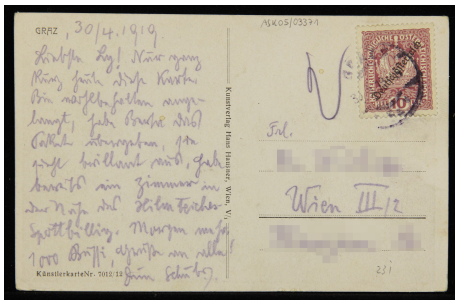 GRAZ, 30/4. 1919.
Liebste Ly! Nur ganz
kurz heute diese Karte.
Bin wohlbehalten ange-
langt, habe Berta das
Paket übergeben, sie
sieht brillant aus, habe
bereits ein Zimmer in
der Nähe des
Spottbillig. Morgen mehr
1000 Bussi, Grüße an alle
Dein
KünstlerkarteNr. 7012/12
Kunstverlag Hans Hassner, Wien, V.
ASK05/03371
Deutschösterreich
10
Frl.
Wien III/2
231